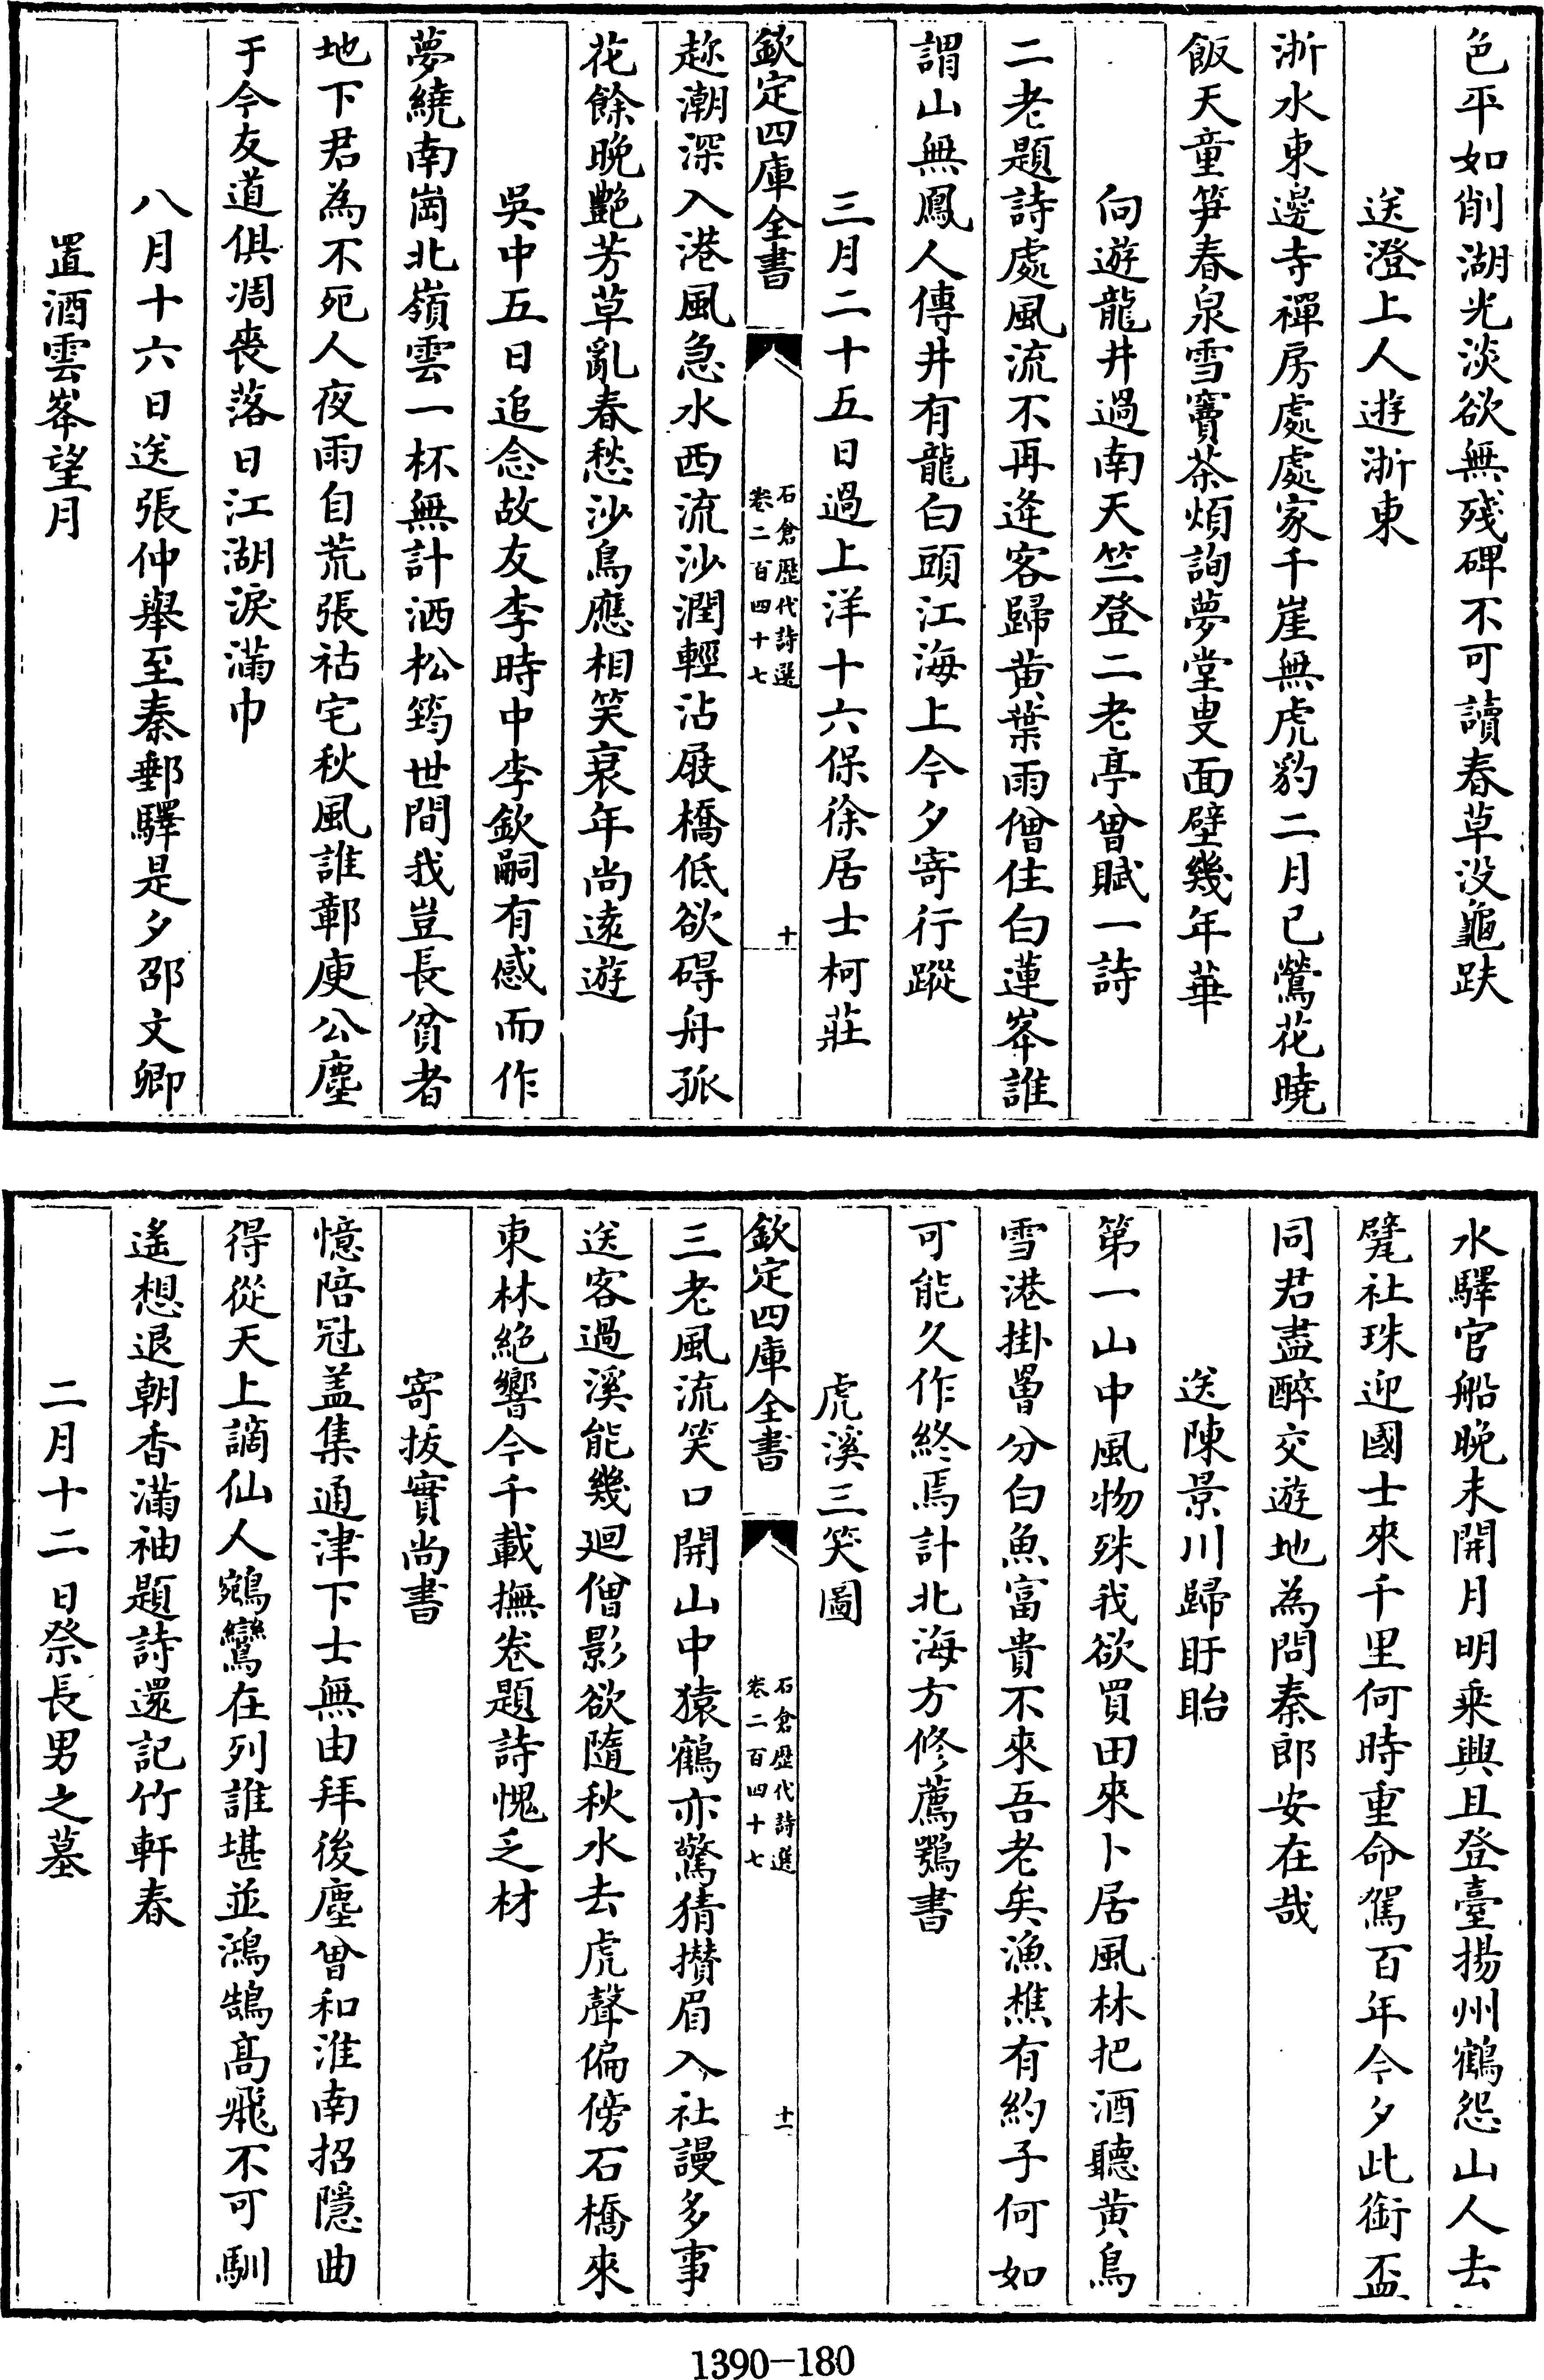 色平如削湖光淡欲無殘碑不可讀春草没龜趺
送澄上人遊浙東
浙水東邊寺禪房處處家千崖無虎豹二月已鶯花曉
飯天童笋春泉雪竇茶煩詢夢堂叟面壁幾年華
向遊龍井過南天竺登二老亭曾賦一詩
二老題詩處風流不再逢客歸黄葉雨僧住白蓮峯誰
謂山無鳳人傳井有龍白頭江海上今夕寄行蹤
三月二十五日過上洋十六保徐居士柯莊
欽定四庫全書
石倉歷代詩選
卷二百四十七
十
趂潮深入港風急水西流沙潤輕沾屐橋低欲碍舟孤
花餘晚艶芳草亂春愁沙鳥應相笑衰年尚遠遊
吳中五日追念故友李時中李欽嗣有感而作
夢繞南崗北嶺雲一杯無計洒松筠世間我豈長貧者
地下君為不死人夜雨自荒張祜宅秋風誰鄣庾公塵
于今友道俱凋喪落日江湖淚滿巾
八月十六日送張仲舉至秦郵驛是夕邵文卿
置酒雲峯望月
水驛官船晚未開月明乘興且登臺揚州鶴怨山人去
甓社珠迎國士來千里何時重命駕百年今夕此銜盃
同君盡醉交遊地為問秦郎安在哉
送陳景川歸盱眙
第一山中風物殊我欲買田來卜居風林把酒聽黄鳥
雪港掛罾分白魚富貴不來吾老矣漁樵有約子何如
可能久作終焉計北海方修薦鶚書
虎溪三笑圖
欽定四庫全書
石倉歷代詩選
卷二百四十七
十一
三老風流笑口開山中猿鶴亦驚猜攅眉入社謾多事
送客過溪能幾廻僧影欲隨秋水去虎聲偏傍石橋來
東林絶響今千載撫卷題詩愧乏材
寄拔實尚書
憶陪冠盖集通津下士無由拜後塵曾和淮南招隱曲
得從天上謫仙人鵷鸞在列誰堪並鴻鵠高飛不可馴
遙想退朝香滿袖題詩還記竹軒春
二月十二日祭長男之墓
1390-180